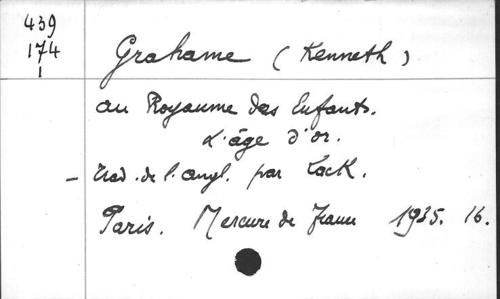 439
174
1
Grahame (Kenneth)
au Royaume des Enfants.
L'âge d'or.
- Trad. de l'angl. par Lock.
Paris. Mercure de France 1935. 16.